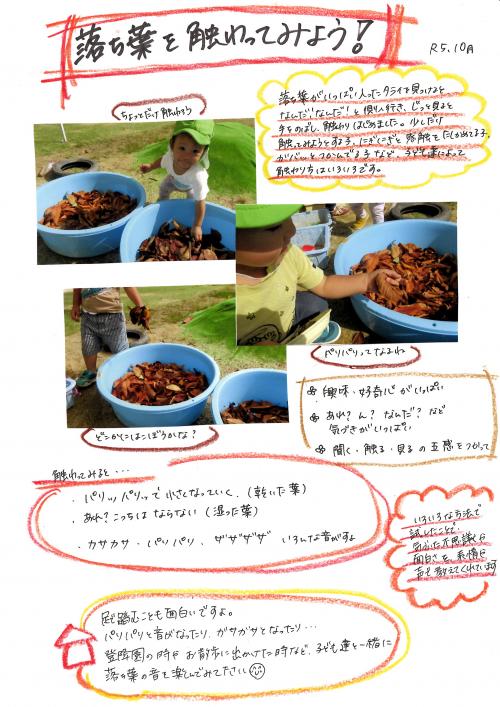 落ち葉を触わってみよう!
R5.10月
ちょっとだけ触わろう
落ち葉がいっぱい入ったタライを見つけると
なんだ!なんだ!と側へ行き、じっと見ると
手をのばし、触わりはじめました。少しだけ
触ってみようとする子、にぎにぎと感触をたしかめる子、
ガバッとつかんでる子など、子ども達によって
触わり方はいろいろです。
パリパリってなるね
どこかにはこぼうかな?
興味・好奇心がいっぱい
あれ?ん?なんだ?など
気づきがいっぱい
聞く・触る・見るの五感をつかって
触わってみると・・・
・パリッパリッで小さなっていく、(乾いた葉)
・あれ?こっちはならない(湿った葉)
・カサカサ・パリパリ、ザザザザ いろんな音がすよ
いろいろな方法で
試したことで
気づいた不思議や
面白さを、表情や
声で教えてくれています
足踏むことも面白いですよ。
パリパリと音がなったり、ガサガサとなったり・・・
登降園の時やお散歩に出かけた時など、子ども達と一緒に
落ち葉の音を楽しんでみてください